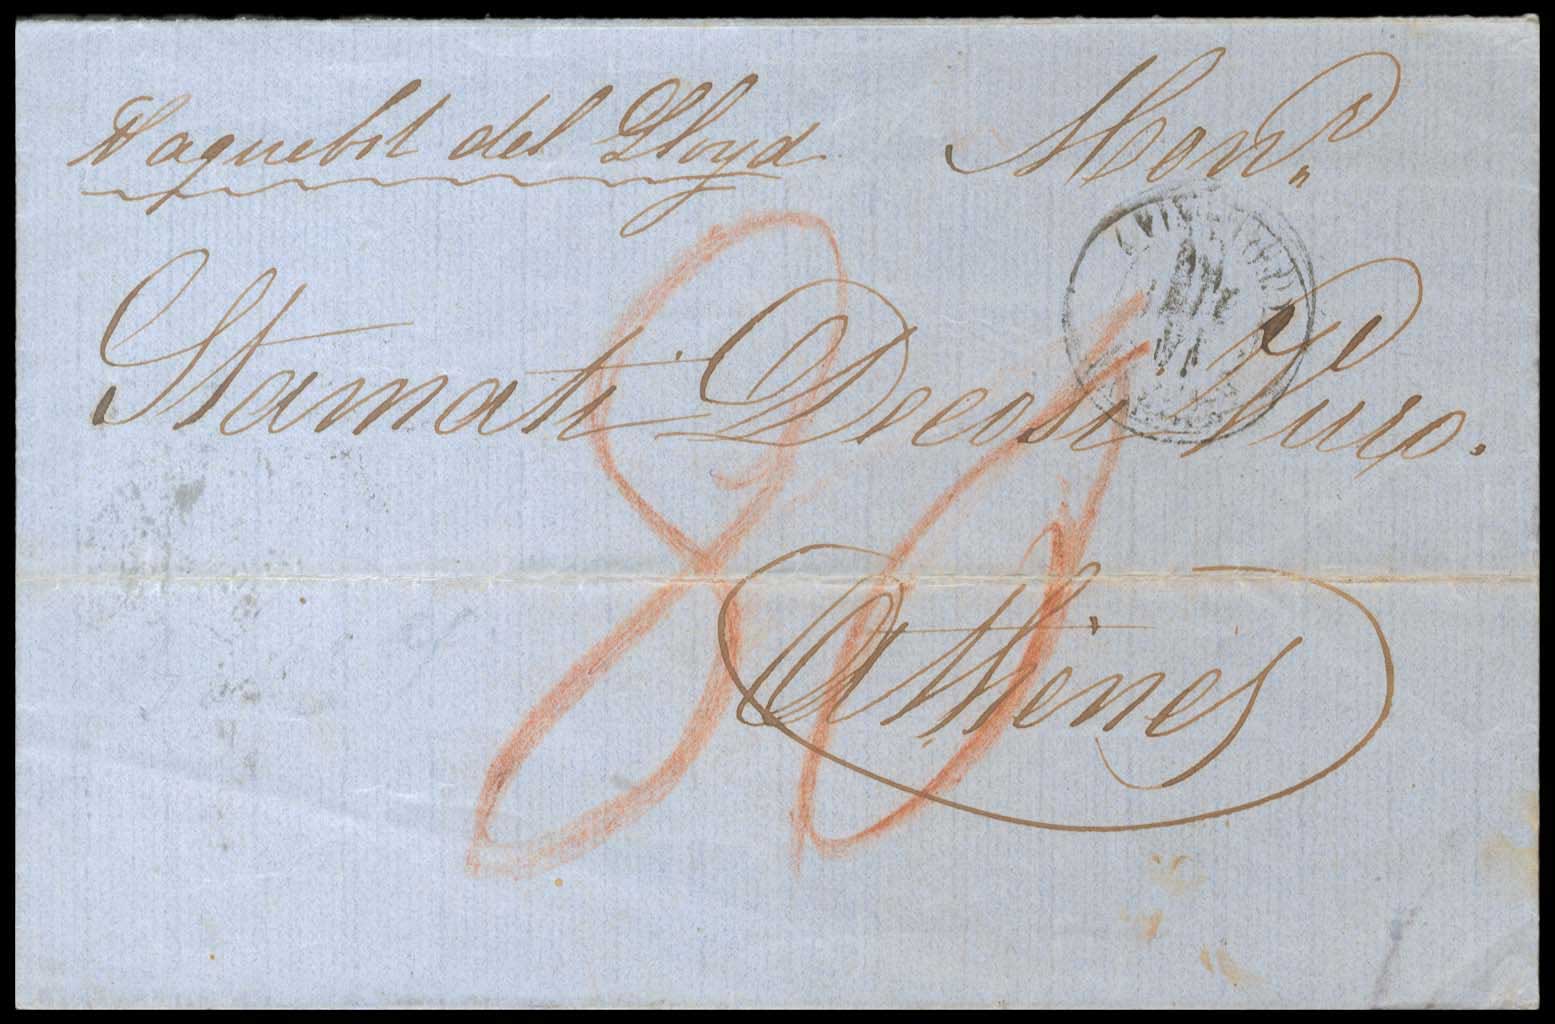 Paquebot del Lloyd
Monr.
Stamati Decosi Puro.
80
Athènes